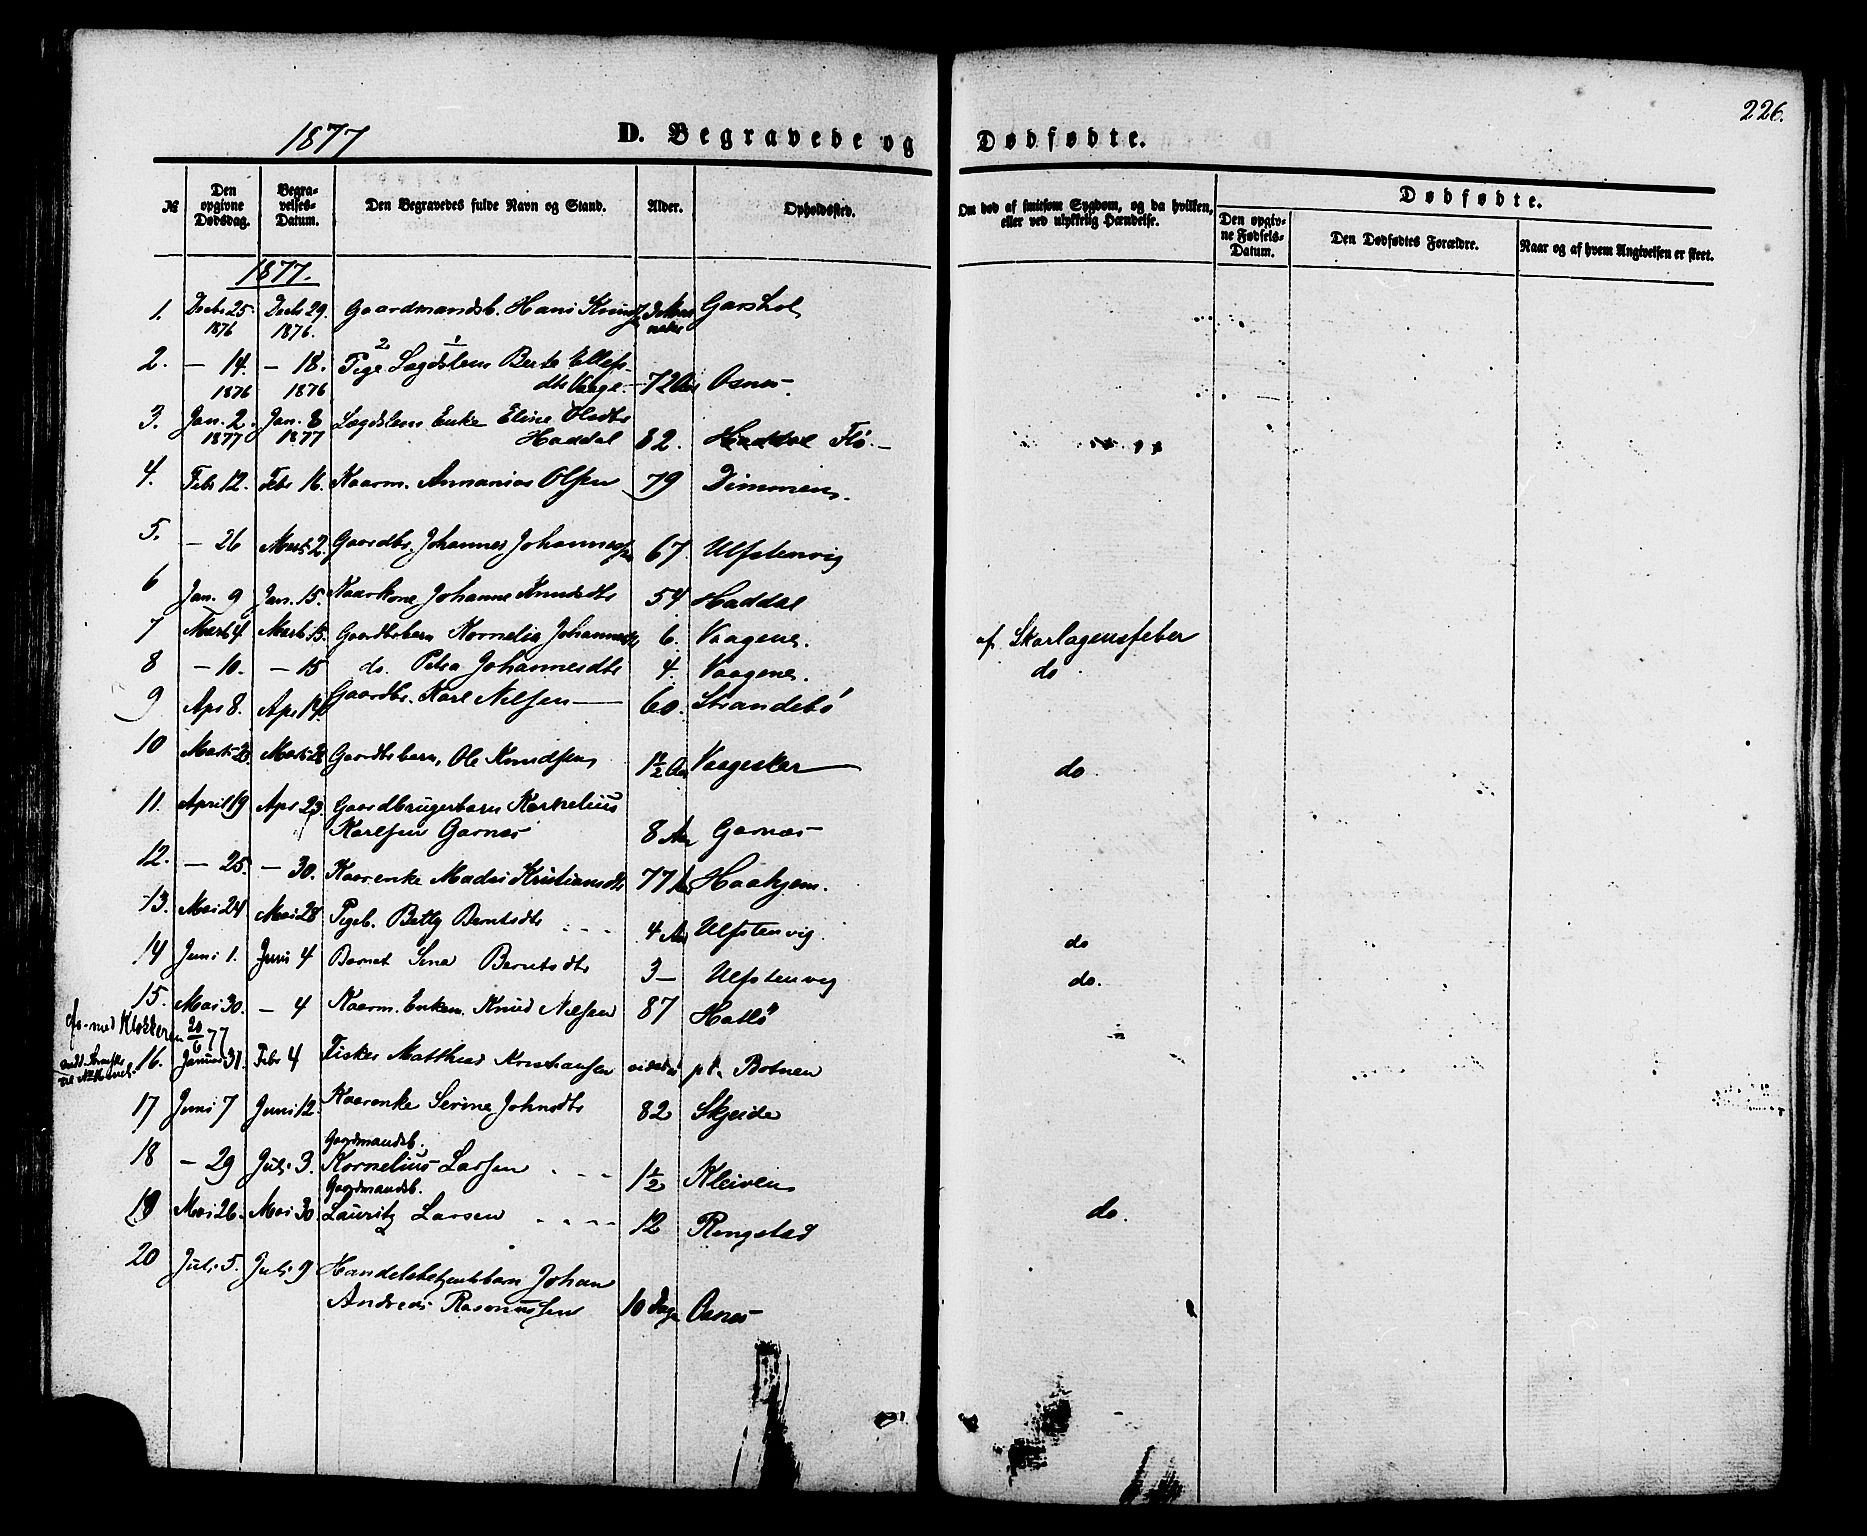 226.
1877 D. Begravede og Dødfødte.
№ Den opgivne Dødsdag. Begravelses-Datum. Den Begravedes fulde Navn og Stand. Alder. Opholdssted. Om død af smitsom Sygdom, og da hvilken, eller ved ulykkelig Hændelse. Dødfødte. Den opgivne Fødsels-Datum. Den Dødfødtes Forældre. Naar og af hvem Angivelsen er skeet.
1877.
1. Decbr 25. 1876 Decbr 29. 1876. Gaardmandsb. Hans Garshol
2. - 14. 1876 - 18. 1876 Pige Lægdslem Berte Ellefs-
dtr Vaage. - 72 Aar Osnes -
3. Jan. 2. 1877 Jan. 8 1877 Lægdslem Enke Eline Olsdtr
Haddal 82. Haddal Flø. -
4. Febr 12. Febr 16. Kaarm. Annanias Olsen 79 Dimmen.
5. - 26 Marts 2. Gaardbr. Johannes Johannessen 67 Ulfstenvig
6 Jan. 9 Jan. 15. Kaarkone Johanne Knudsdtr 54 Haddal
7 Marts 4 Marts 15. Gaardbrbarn Kornelia Johannesdtr 6. Vaagene. af Skarlagensfeber
8 - 10. - 15 do. Petra Johannesdtr 4. Vaagene. do
9 Apr 8. Apr 14 Gaardbr. Karl Nilsen 60. Strandebø
10 Marts Marts Gaardbrbarn, Ole Knudsen 1 1/2 Aar Vaageskar do
11. April 19 Apr 23. Gaardbrugerbarn Kornelius
Karlsen Garnes 8 Aar Garnæs -
12. - 25. - 30. Kaarenke Madsi Kristiansdtr 77 Aar Haahjem.
13. Mai 24 Mai 28 Pigeb. Betty Berntsdtr 4 Aar Ulfstenvig. do
14 Juni 1. Juni 4 Barnet Sina Berntsdtr 3 - Ulfstenvig do.
15. Mai 30. - 4 Kaarm. Enkem. Knud Nilsen 87 Hatlø
med Klokkeren 20/6 77
16. Januar 31. Febr 4 Fisker Matthias Kristiansen p.t. Botnen
17 Juni 7 Juni 12. Kaarenke Serine Johnsdtr 82 Skjeide
18 - 29 Juli 3. Gaardmandsb.
Kornelius Larsen 1 1/2 Kleiven
19 Mai 26. Mai 30 Gaardmandsb.
Lauritz Larsen 12 Ringstad do.
20 Juli 5. Juli 9 Handelsbetjentbarn Johan
Andreas Rasmussen 10 Dage Osnes -